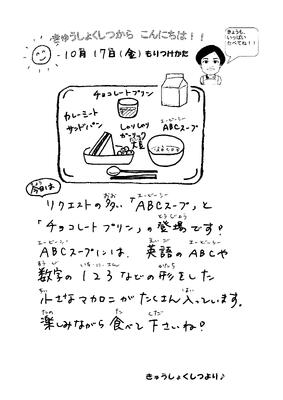 きゅうしょくしつから こんにちは！！
きょうも、
いっぱい
たべてね！！
10月 17日(金) もりつけかた
チョコレートプリン
カレーミート
サンドパン
しゃりしゃり
ガーリック
大豆
エービーシー
ABCスープ
きょう
今日は
リクエストの多い「ABCスープ」と
「チョコレートプリン」の登場です！
ABCスープには、英語のABCや
数字の123などの形をした
小さなマカロニがたくさん入っています。
楽しみながら食べて下さいね！
きゅうしょくしつより♪